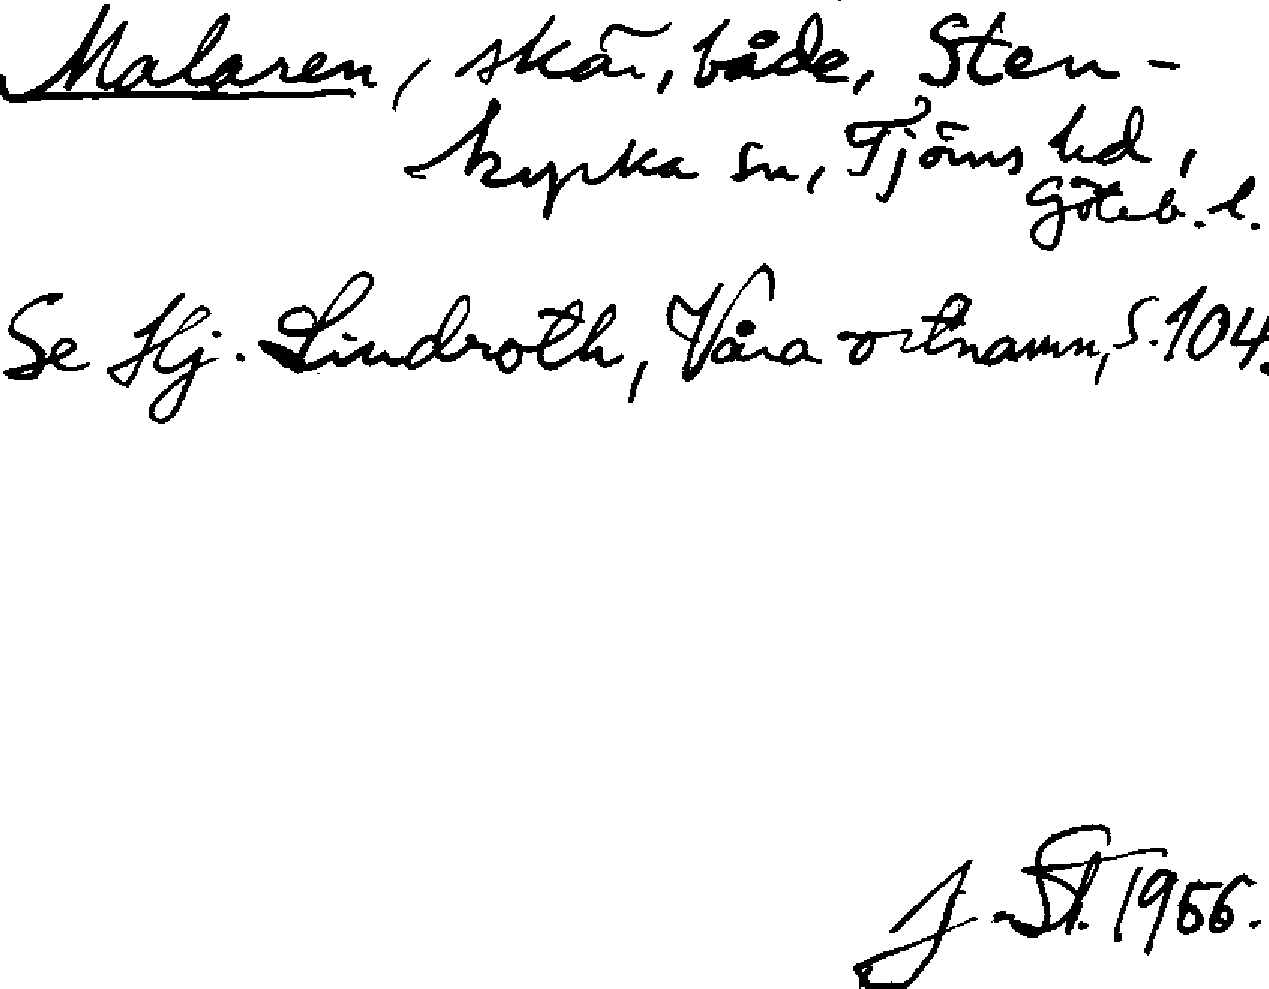 Malaren, skär, både, Sten-
kyrka sn, Tjörns hd,
Göteb. l.
Se Hj. Lindroth, Våra ortnamn, s. 104.
J. St. 1956.